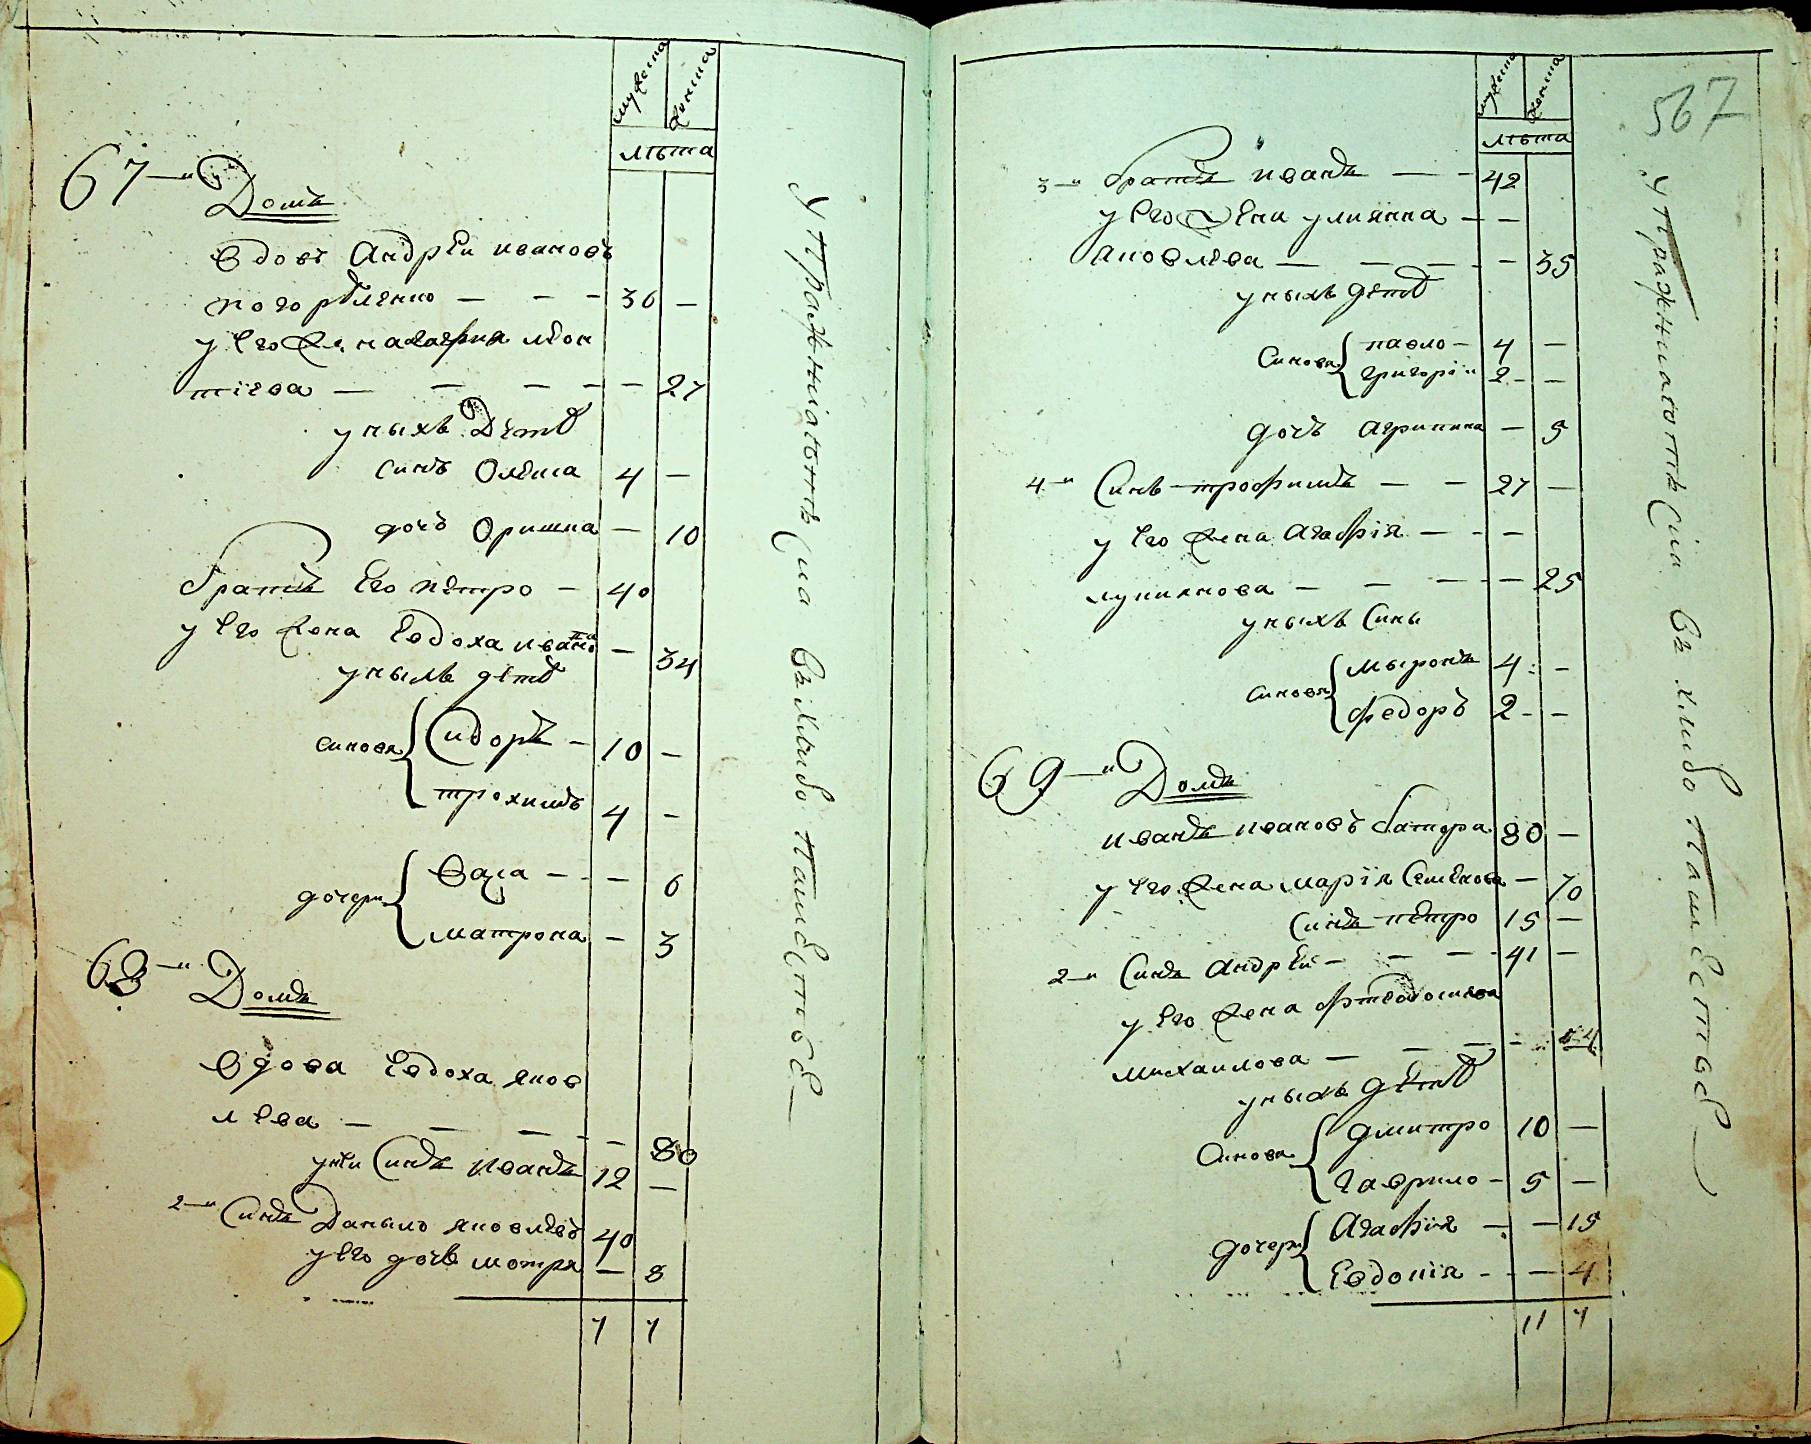 мужеска женска
лѣта
67-й Домъ
вдовъ Андрѣй ивановъ
погорѣленко — — — 36 —
у его жена
тиева — — — — 27
у ныхъ Дѣтѣ
синъ Олѣша 4 —
дочъ Оришка — 10
братъ его пѣтро — 40
у его жена Евдоха ивано — 34
у ныхъ дѣтѣ
синовя Сидоръ — 10 —
трохимъ 4 —
дочери Васа — — 6
матрона — 3
68-й Домъ
вдова Евдоха яков
лева — — — — 80
у неи Синъ иванъ 12 —
2-й Синъ Даныло яковлевъ 40
у его дочъ мотря — 8
7 7
упражниаютъ Сиа въ хлибо пашествѣ
567
мужеска женска
лѣта
3-й братъ иванъ — — 42
у его жени улиянна — —
яковлева — — — — 35
у ныхъ дѣтѣ
Синовя павло — 4 —
григорій 2 — —
дочъ агрипина — 5
4-й Синъ трофимъ — — 27 —
у его жена Агафія — — —
лукиянова — — — — 25
у ныхъ Сины
Синовя мыронъ 4 —
федоръ 2 — —
69-й Домъ
иванъ ивановъ батюра 80 —
у его жена марія Семѣнова — 70
Синъ пѣтро 15 —
2-й Синъ андрѣй — — — 41 —
у его жена
михаилова — — — — 34
у ныхъ дѣтѣ
Синовя дмитро 10 —
гаврило — 5 —
дочери Агафія — — 15
Евдокія — — 4
11 7
упражниаютъ Сиа въ хлибо пашествѣ